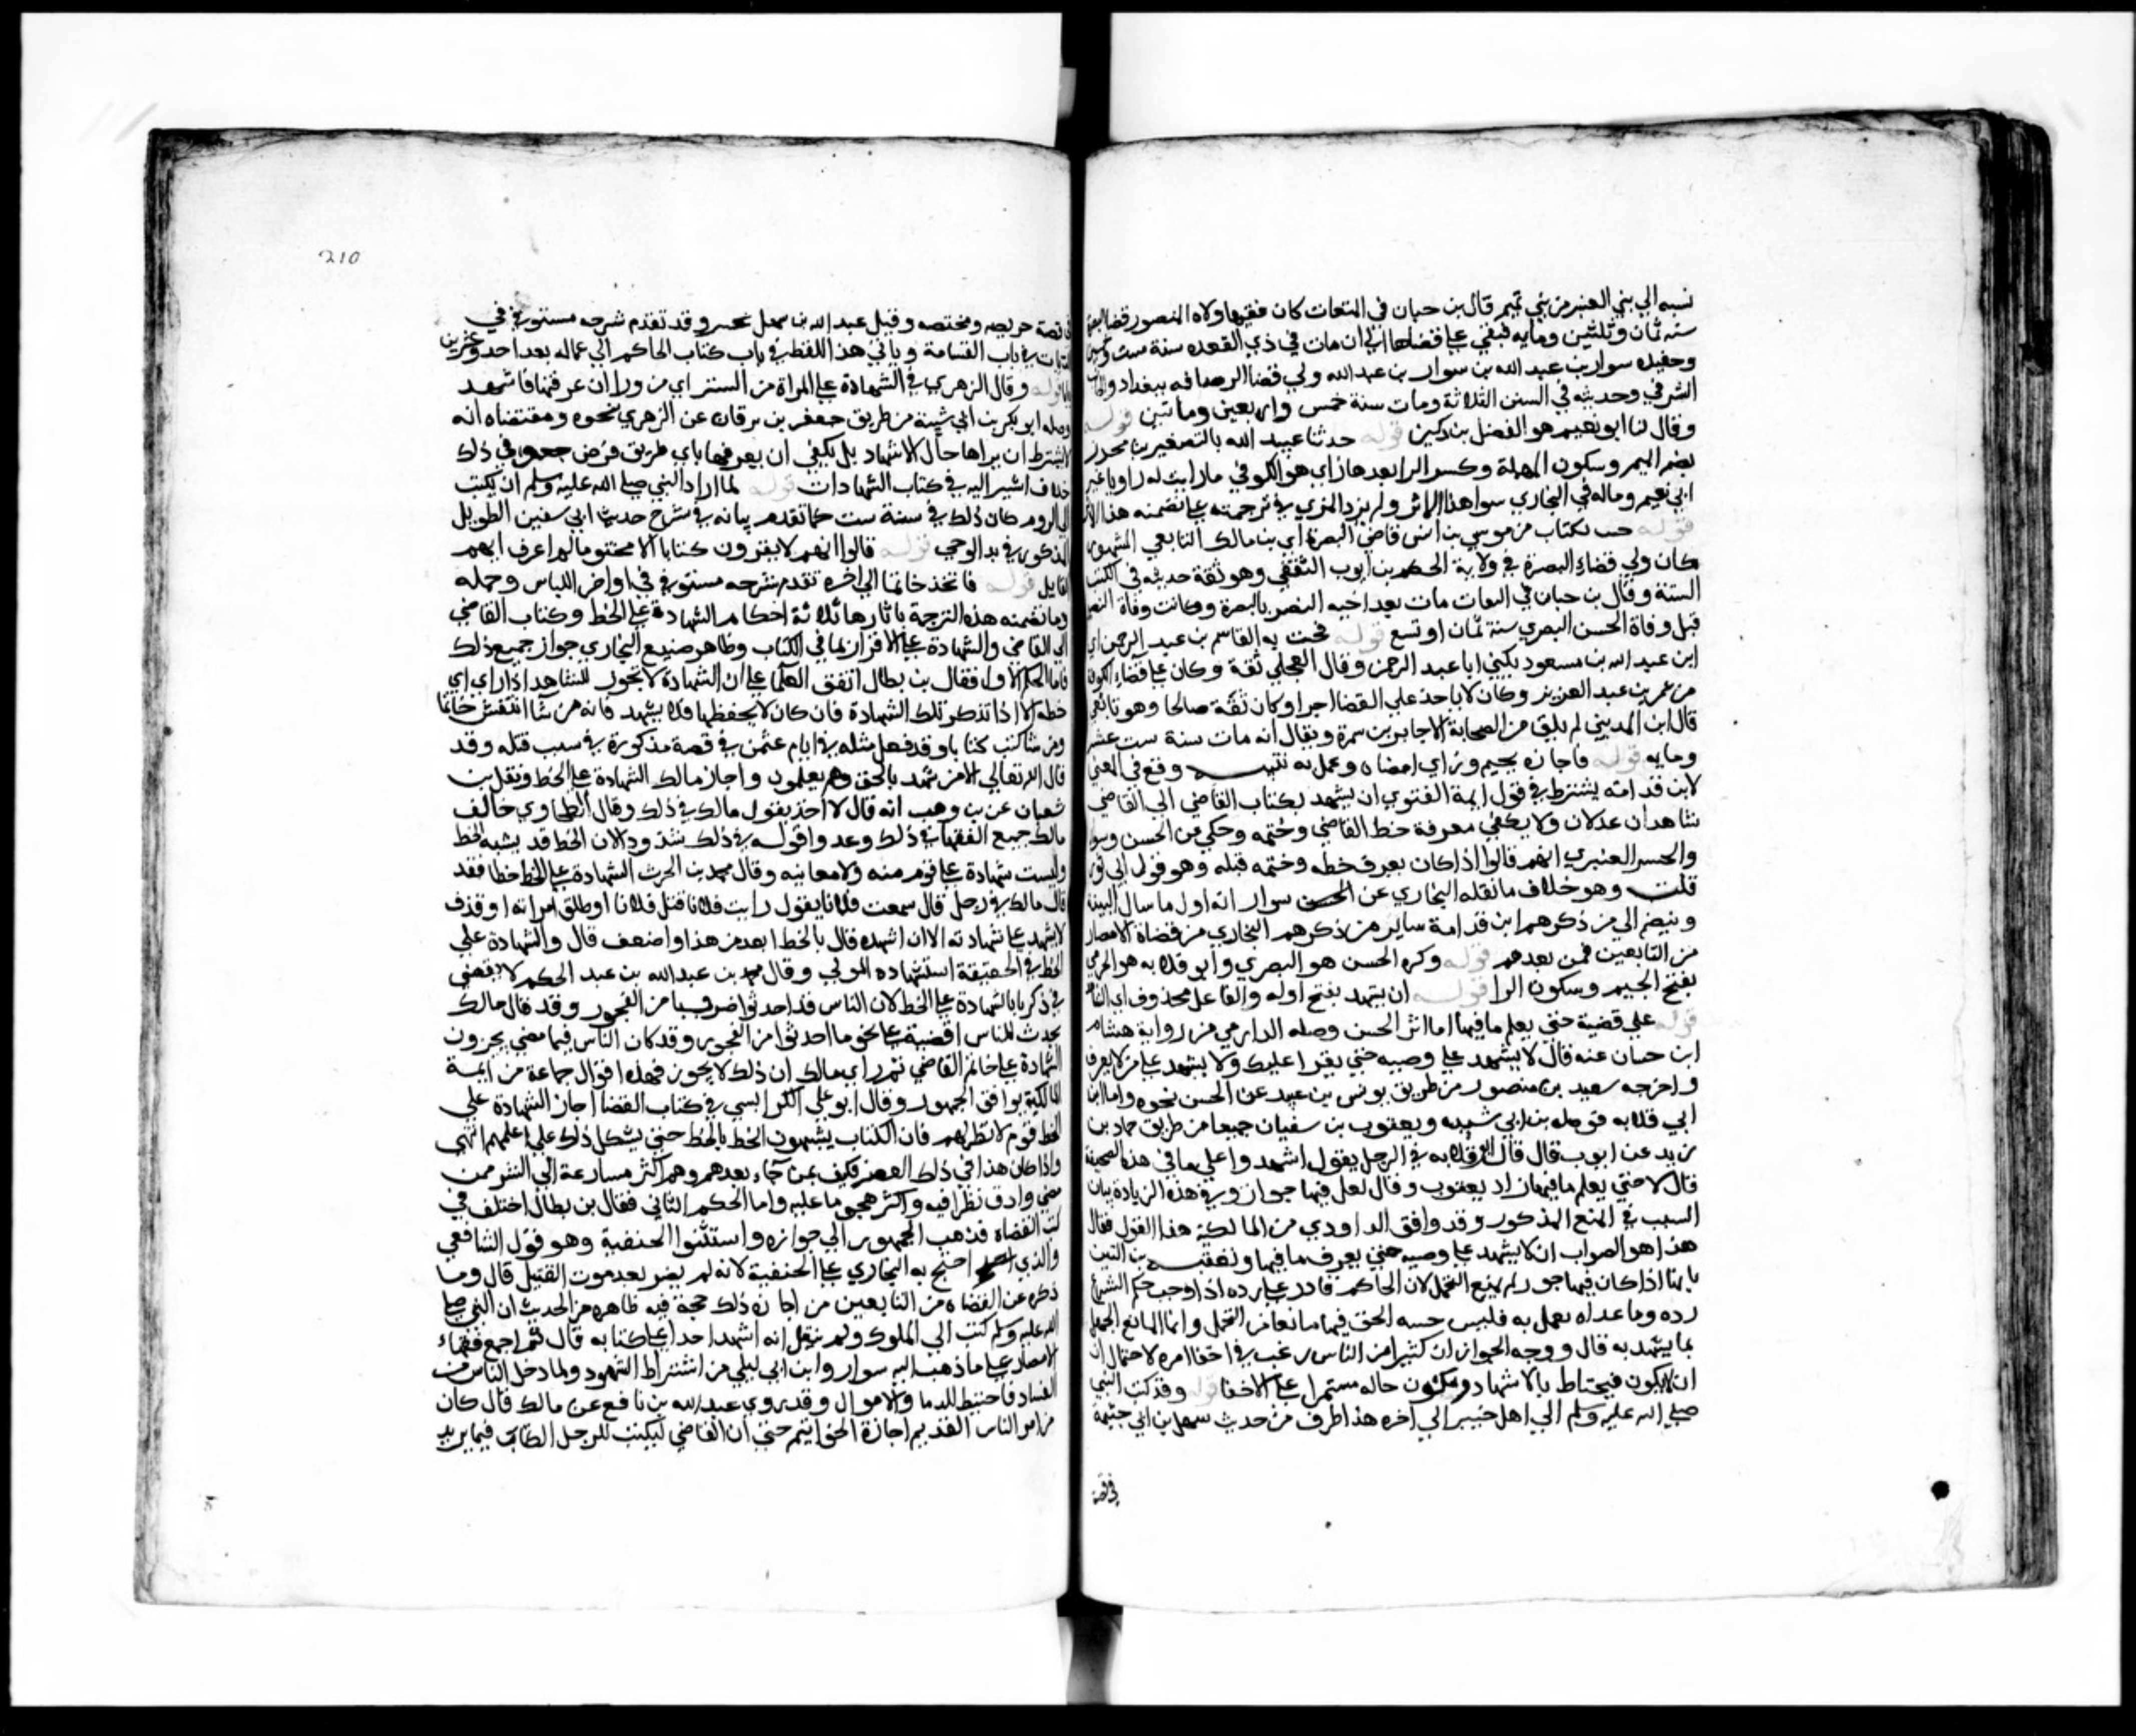 نسبه الي بني العنبر من بني تميم قال بن حبان في الثقات كان فقيها ولاه المنصور قضا البصرة
سنه ثمان وثلثين ومايه فبقي علي قضاها الي ان مات في ذي القعده سنة ست وخمسين
وحفيده سوار بن عبد الله بن سوار بن عبد الله ولي قضا الرصافه ببغداد والجانب
الشرقي وحديثه في السنن الثلاثة ومات سنة خمس واربعين وماتين قوله
وقال لنا ابو نعيم هو الفضل بن دكين قوله حدثنا عبيد الله بالتصغير بن محرز
بضم الميم وسكون المهملة وكسر الرا بعدها زاي هو الكوفي ما رايت له راويا غير
ابي نعيم وماله في البخاري سوا هذا الاثر ولم يزد المزي في ترجمته علي ما تضمنه هذا الاثر
قوله جيت بكتاب من موسي بن انس قاضي البصرة اي بن مالك التابعي المشهور
كان ولي قضاء البصرة في ولاية الحكم بن ايوب الثقفي وهو ثقة حديثه في الكتب
الستة وقال بن حبان في الثقات مات بعد اخيه النضر بالبصرة وكانت وفاة النضر
قبل وفاة الحسن البصري سنة ثمان او تسع قوله فجت به القاسم بن عبد الرحمن اي
ابن عبد الله بن مسعود يكني ابا عبد الرحمن وقال العجلي ثقة وكان علي قضاء الكوفة
من عمر بن عبد العزيز وكان لا ياخذ علي القضا اجرا وكان ثقة صالحا وهو تابعي
قال ابن المديني لم يلق من الصحابة الا جابر بن سمرة ويقال انه مات سنة ست عشر
ومايه قوله فاجازه بجيم وزاي امضاه وعمل به تنبيه وقع في المغني
لابن قدامه يشترط في قول ايمة الفتوي ان يشهد بكتاب القاضي الي القاضي
شاهدان عدلان ولا يكفي معرفة خط القاضي وختمه وحكي من الحسن وسوار
والحسن العنبري انهم قالوا اذا كان يعرف خطه وختمه قبله وهو قول ابي ثور
قلت وهو خلاف ما نقله البخاري عن سوار انه اول ما سال البينة
وينضم الي من ذكرهم ابن قدامة ساير من ذكرهم البخاري من قضاة الامصار
من التابعين فمن بعدهم قوله وكره الحسن هو البصري وابو قلابه هو الجرمي
بفتح الجيم وسكون الرا قوله ان يشهد بفتح اوله والفاعل محذوف اي الشاهد
قوله علي قضية حتي يعلم ما فيها اما اثر الحسن وصله الدارمي من رواية هشام
ابن حسان عنه قال لا يشهد علي وصيه حتي يقرا عليك ولا يشهد علي من لا يعرف
واخرجه سعيد بن منصور من طريق يونس بن عبيد عن الحسن نحوه واما ابن
ابي قلابه فوصله بن ابي شيبه ويعقوب بن سفيان جميعا من طريق حماد بن
زيد عن ايوب قال قال ابو قلابه في الرجل يقول اشهد واعلي ما في هذه الصحيفة
قال لا حتي يعلم ما فيها زاد يعقوب وقال لعل فيها جوار وفي هذه الزيادة بيان
السبب في المنع المذكور وقد وافق الداودي من المالكية هذا القول فقال
هذا هو الصواب ان لا يشهد علي وصيه حتي يعرف ما فيها وتعقبه بن التين
باينا اذا كان فيها جور لم يمنع التحمل لان الحاكم قادر علي رده اذا اوجب حكم الشرع
رده وما عداه يعمل به فليس خسه الحق فيها مانعا من التحمل وانما المانع الجهل
بما يشهد به قال ووجه الجواز ان كثيرا من الناس رغب في اخفا امره لاحتمال ان
ان لا يكون فيحتاط بالاشهاد ويكون حاله مستمرا علي الاخفا قوله وقد كتب النبي
صلي الله عليه وسلم الي اهل خيبر الي اخره هذا طرف من حديث سهل بن ابي حثمة
في قصة
210
في قصة حويصه ومحيصه وقيل عبد الله بن سهل بخيبر وقد تقدم شرحه مستوفي في
الديات في باب القسامة وياتي هذا اللفظ في باب كتاب الحاكم الي عماله بعد احد وعشرين
بابا قوله وقال الزهري في الشهادة علي المراة من الستر اي من ورا ان عرفتها فاشهد
وصله ابو بكر بن ابي شيبة من طريق جعفر بن برقان عن الزهري نحوه ومقتضاه انه
لا يشترط ان يراها حال الاشهاد بل يكفي ان يعرفها باي طريق فرض وفي ذلك
خلاف اشير اليه في كتاب الشهادات قوله لما اراد النبي صلي الله عليه وسلم ان يكتب
الي الروم كان ذلك في سنة ست كما تقدم بيانه في شرح حديث ابي سفين الطويل
المذكور في بدا الوحي قوله قالوا انهم لا يقرون كتابا الا مختوما لم اعرف اسم
القايل قوله فاتخذ خاتما الي اخره تقدم شرحه مستوفي في اواخر اللباس وجمله
وما تضمنه هذه الترجة باثارها ثلاثة احكام الشهادة علي الخط وكتاب القاضي
الي القاضي والشهادة علي الاقرار بما في الكتاب وظاهر صنيع البخاري جواز جميع ذلك
فاما الحكم الاول فقال بن بطال اتفق العلما علي ان الشهادة لا تجوز للشاهد اذا راي
خطه الا اذا تذكر تلك الشهادة فان كان لا يحفظها فلا يشهد فانه من شا انتقش خاتما
ومن شا كتب كتابا وقد فعل مثله في ايام عثمن في قصة مذكورة في سبب قتله وقد
قال الله تعالي الا من شهد بالحق وهم يعلمون واجاز مالك الشهادة علي الخط ونقل بن
شعبان عن بن وهب انه قال لا اخذ بقول مالك في ذلك وقال الطحاوي خالف
مالك جميع الفقها في ذلك وعدوا قوله في ذلك شذوذا لان الخط قد يشبه الخط
وليست شهادة علي قول منه ولا معاينه وقال محمد بن الحرث الشهادة علي الخط خطا فقد
قال مالك في رجل قال سمعت فلانا يقول رايت فلانا قتل فلانا او طلق امراته او قذف
لا يشهد علي شهادته الا ان اشهده قال بالخط ابعد من هذا واضعف قال والشهادة علي
الخط في الحقيقة استشهاد الموتي وقال محمد بن عبد الله بن عبد الحكم لا يقضي
في ذكرنا بالشهادة علي الخط لان الناس قد احدثوا ضروبا من الفجور وقد قال مالك
يحدث للناس اقضية علي نحو ما احدثوا من الفجور وقد كان الناس فيما مضي يجيزون
الشهادة علي خاتم القاضي ثم راي مالك ان ذلك لا يجوز فهذه اقوال جماعة من ايمة
المالكية يوافق الجمهور وقال ابو علي الكرابيسي في كتاب القضا اجاز الشهادة علي
الخط قوم لا نظر لهم فان الكتاب يشبهون الخط بالخط حتي يشكل ذلك علي اعلمهم انتهي
واذا كان هذا في ذلك العصر فكيف بمن جاء بعدهم وهم اكثر مسارعة الي الشر ممن
مضي وادق نظرا فيه واكثر هجوما عليه واما الحكم الثاني فقال بن بطال اختلف في
كتب القضاة فذهب الجمهور الي جوازه واستثنوا الحنفية وهو قول الشافعي
والذي احتج به البخاري علي الحنفية لانه لم يضر بعد موت القتيل قال وما
ذكره عن القضاة من التابعين من اجازه ذلك حجة فيه ظاهره من الحديث ان النبي صلي
الله عليه وسلم كتب الي الملوك ولم ينقل انه اشهد احدا علي كتابه قال ثم اجمع فقهاء
الامصار علي ما ذهب اليه سوار وابن ابي ليلي من اشتراط الشهود ولما دخل الناس من
الفساد فاحتيط للدما والاموال وقد روي عبد الله بن نافع عن مالك قال كان
من امر الناس القديم اجازة الخواتيم حتي ان القاضي ليكتب للرجل الكتاب فيما يريد